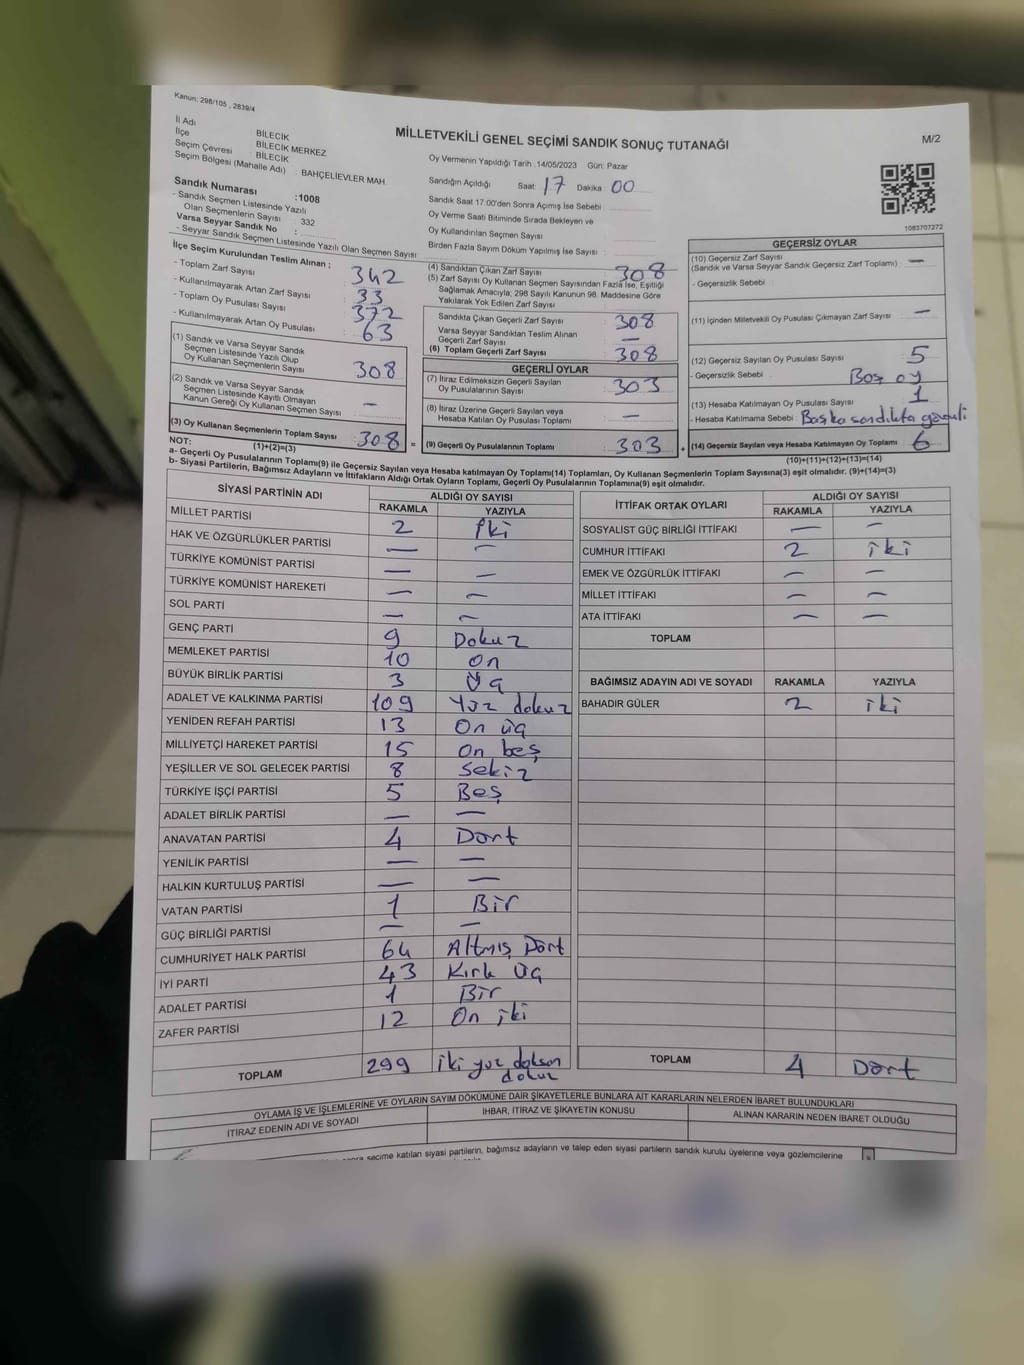 Kanun: 298/105 , 2839/4
MİLLETVEKİLİ GENEL SEÇİMİ SANDIK SONUÇ TUTANAĞI
M/2
İl Adı BİLECİK
İlçe BİLECİK MERKEZ
Seçim Çevresi : BİLECİK
Seçim Bölgesi (Mahalle Adı) : BAHÇELİEVLER MAH.
Sandık Numarası :1008
- Sandık Seçmen Listesinde Yazılı
Olan Seçmenlerin Sayısı : 332
Varsa Seyyar Sandık No :
- Seyyar Sandık Seçmen Listesinde Yazılı Olan Seçmen Sayısı
Oy Vermenin Yapıldığı Tarih :14/05/2023 Gün: Pazar
Sandığın Açıldığı Saat: 17 Dakika 00
Sandık Saat 17:00'den Sonra Açılmış İse Sebebi :
Oy Verme Saati Bitiminde Sırada Bekleyen ve
Oy Kullandırılan Seçmen Sayısı :
Birden Fazla Sayım Döküm Yapılmış İse Sayısı :
1083707272
İlçe Seçim Kurulundan Teslim Alınan ;
- Toplam Zarf Sayısı : 342
- Kullanılmayarak Artan Zarf Sayısı : 33
- Toplam Oy Pusulası Sayısı : 372
- Kullanılmayarak Artan Oy Pusulası : 63
(1) Sandık ve Varsa Seyyar Sandık
Seçmen Listesinde Yazılı Olup
Oy Kullanan Seçmenlerin Sayısı : 308
(2) Sandık ve Varsa Seyyar Sandık
Seçmen Listesinde Kayıtlı Olmayan
Kanun Gereği Oy Kullanan Seçmen Sayısı : –
(3) Oy Kullanan Seçmenlerin Toplam Sayısı : 308 =
(1)+(2)=(3)
(4) Sandıktan Çıkan Zarf Sayısı : 308
(5) Zarf Sayısı Oy Kullanan Seçmen Sayısından Fazla İse, Eşitliği
Sağlamak Amacıyla; 298 Sayılı Kanunun 98. Maddesine Göre
Yakılarak Yok Edilen Zarf Sayısı
Sandıkta Çıkan Geçerli Zarf Sayısı : 308
Varsa Seyyar Sandıktan Teslim Alınan
Geçerli Zarf Sayısı : —
(6) Toplam Geçerli Zarf Sayısı : 308
GEÇERLİ OYLAR
(7) İtiraz Edilmeksizin Geçerli Sayılan
Oy Pusulalarının Sayısı : 303
(8) İtiraz Üzerine Geçerli Sayılan veya
Hesaba Katılan Oy Pusulası Toplamı : —
(9) Geçerli Oy Pusulalarının Toplamı : 303 +
GEÇERSİZ OYLAR
(10) Geçersiz Zarf Sayısı
(Sandık ve Varsa Seyyar Sandık Geçersiz Zarf Toplamı) : —
- Geçersizlik Sebebi :
(11) İçinden Milletvekili Oy Pusulası Çıkmayan Zarf Sayısı : —
(12) Geçersiz Sayılan Oy Pusulası Sayısı : 5
- Geçersizlik Sebebi : Boş oy
(13) Hesaba Katılmayan Oy Pusulası Sayısı : 1
- Hesaba Katılmama Sebebi : Başka sandıkta
(14) Geçersiz Sayılan veya Hesaba Katılmayan Oy Toplamı : 6
(10)+(11)+(12)+(13)=(14)
NOT:
a- Geçerli Oy Pusulalarının Toplamı(9) ile Geçersiz Sayılan veya Hesaba katılmayan Oy Toplamı(14) Toplamları, Oy Kullanan Seçmenlerin Toplam Sayısına(3) eşit olmalıdır. (9)+(14)=(3)
b- Siyasi Partilerin, Bağımsız Adayların ve İttifakların Aldığı Ortak Oyların Toplamı, Geçerli Oy Pusulalarının Toplamına(9) eşit olmalıdır.
SİYASİ PARTİNİN ADI ALDIĞI OY SAYISI
RAKAMLA YAZIYLA
MİLLET PARTİSİ 2 İki
HAK VE ÖZGÜRLÜKLER PARTİSİ — —
TÜRKİYE KOMÜNİST PARTİSİ — —
TÜRKİYE KOMÜNİST HAREKETİ — —
SOL PARTİ — —
GENÇ PARTİ 9 Dokuz
MEMLEKET PARTİSİ 10 On
BÜYÜK BİRLİK PARTİSİ 3 Üç
ADALET VE KALKINMA PARTİSİ 109 Yüz dokuz
YENİDEN REFAH PARTİSİ 13 On üç
MİLLİYETÇİ HAREKET PARTİSİ 15 On beş
YEŞİLLER VE SOL GELECEK PARTİSİ 8 Sekiz
TÜRKİYE İŞÇİ PARTİSİ 5 Beş
ADALET BİRLİK PARTİSİ — —
ANAVATAN PARTİSİ 4 Dört
YENİLİK PARTİSİ — —
HALKIN KURTULUŞ PARTİSİ — —
VATAN PARTİSİ 1 Bir
GÜÇ BİRLİĞİ PARTİSİ — —
CUMHURİYET HALK PARTİSİ 64 Altmış Dört
İYİ PARTİ 43 Kırk Üç
ADALET PARTİSİ 1 Bir
ZAFER PARTİSİ 12 On iki
TOPLAM 299 iki yüz doksan
dokuz
İTTİFAK ORTAK OYLARI ALDIĞI OY SAYISI
RAKAMLA YAZIYLA
SOSYALİST GÜÇ BİRLİĞİ İTTİFAKI — —
CUMHUR İTTİFAKI 2 iki
EMEK VE ÖZGÜRLÜK İTTİFAKI — —
MİLLET İTTİFAKI — —
ATA İTTİFAKI — —
TOPLAM
BAĞIMSIZ ADAYIN ADI VE SOYADI RAKAMLA YAZIYLA
BAHADIR GÜLER 2 iki
TOPLAM 4 Dört
OYLAMA İŞ VE İŞLEMLERİNE VE OYLARIN SAYIM DÖKÜMÜNE DAİR ŞİKAYETLERLE BUNLARA AİT KARARLARIN NELERDEN İBARET BULUNDUKLARI
İTİRAZ EDENİN ADI VE SOYADI İHBAR, İTİRAZ VE ŞİKAYETİN KONUSU ALINAN KARARIN NEDEN İBARET OLDUĞU
seçime katılan siyasi partilerin, bağımsız adayların ve talep eden siyasi partilerin sandık kurulu üyelerine veya gözlemcilerine